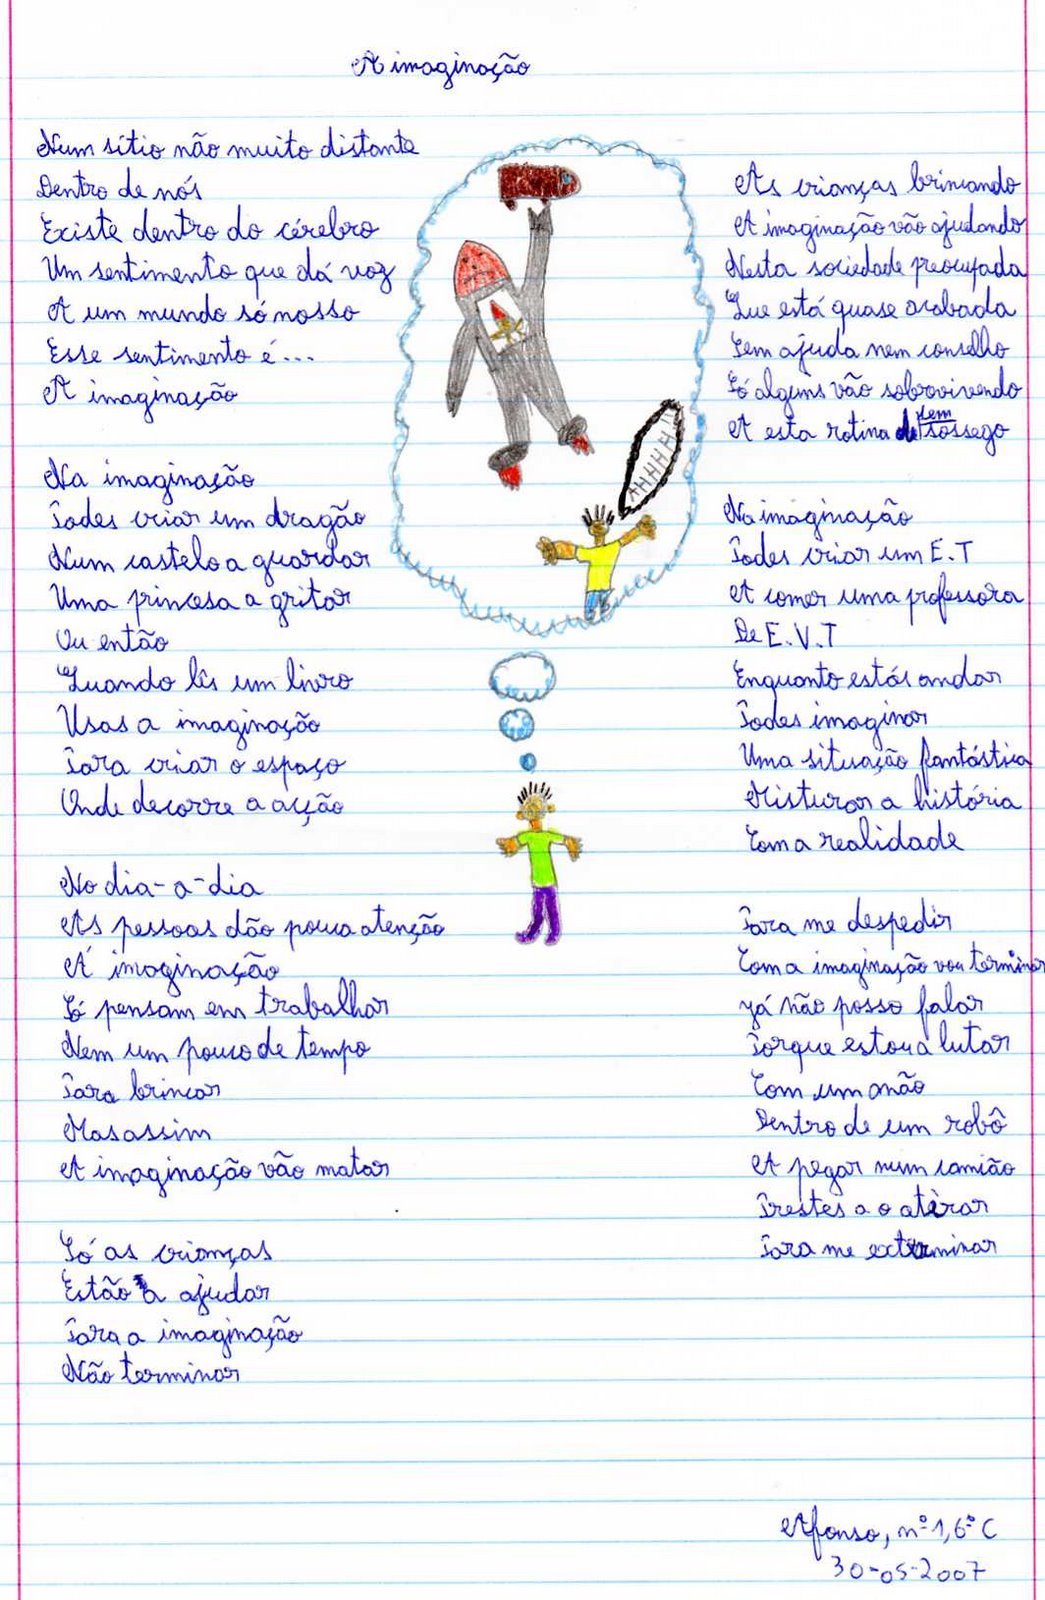 A imaginação
Num sítio não muito distante
Dentro de nós
Existe dentro do cérebro
Um sentimento que dá voz
A um mundo só nosso
Esse sentimento é...
A imaginação
Na imaginação
Podes criar um dragão
Num castelo a guardar
Uma princesa a gritar
Ou então
Quando lês um livro
Usas a imaginação
Para criar o espaço
Onde decorre a acção
No dia-a-dia
As pessoas dão pouca atenção
Á imaginação
Só pensam em trabalhar
Nem um pouco de tempo
Para brincar
Mas assim
A imaginação vão matar
Só as crianças
Estão a ajudar
Para a imaginação
Não terminar
AHHHH!!
As crianças brincando
A imaginação vão ajudando
Nesta sociedade preocupada
Que está quase acabada
Sem ajuda nem conselho
Só alguns vão sobrevivendo
A esta rotina sem sossego
Na imaginação
Podes criar um E.T
A comer uma professora
De E.V.T
Enquanto estás andar
Podes imaginar
Uma situação fantástica
Misturar a história
Com a realidade
Para me despedir
Com a imaginação vou terminar
Já não posso falar
Porque estou a lutar
Com um anão
Dentro de um robô
A pegar num camião
Prestes a o atirar
Para me exterminar
Afonso, nº1, 6º C
30-05-2007